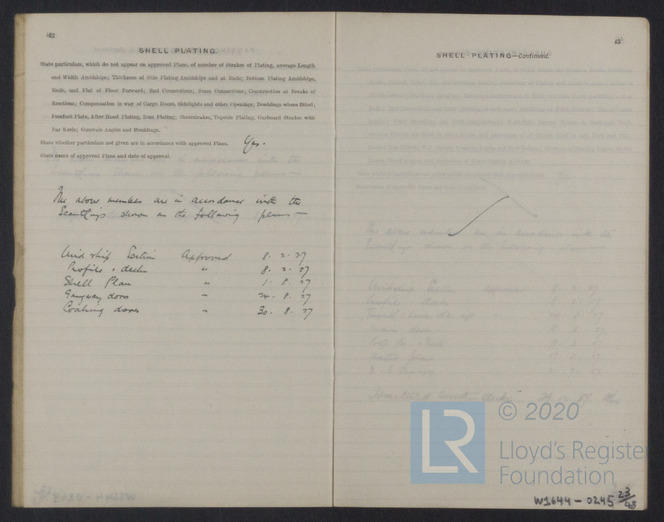 SHELL PLATING.
State particulars, which do not appear on approved Plans, of number of Strakes of Plating, average Length
and Width Amidships; Thickness of Side Plating Amidships and at Ends; Bottom Plating Amidships,
Ends, and Flat of Floor Forward; End Connections; Seam Connections; Construction at Breaks of
Erections; Compensation in way of Cargo Doors, Sidelights and other Openings; Doublings where fitted;
Oxter Plate, After Hood Plating, Boss Plating; Sheerstrakes, Topside Plating, Garboard Strakes with
Bar Keels; Gunwale Angles and Mouldings.
State whether particulars not given are in accordance with approved Plans. Yes.
State name of approved Plans and date of approval.
The above members are in accordance with the
Scantlings shown on the following plans —
Midship Section Approved 8. 2. 27
Profile & decks " 8. 2. 27
Shell Plan " 1. 8. 27
Gangway doors " 24. 8. 27
Coaling doors " 30. 8. 27
SHELL PLATING—Continued.
© 2020
LR
Lloyd's Register
Foundation
W1644 - 0245 23/48